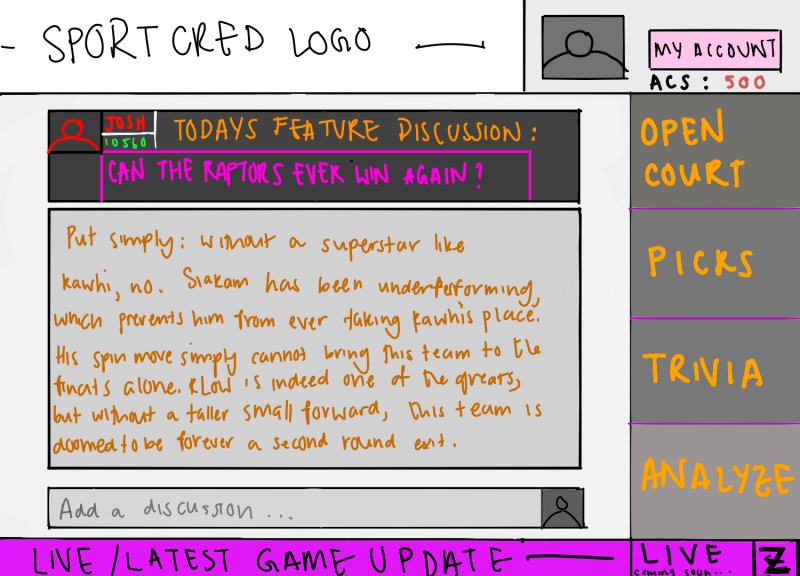 - SPORT CRED LOGO —
MY ACCOUNT
ACS: 500
JOSH
10560
TODAYS FEATURE DISCUSSION:
CAN THE RAPTORS EVER WIN AGAIN?
Put simply: without a superstar like
kawhi, no. Siakam has been underperforming,
which prevents him from ever taking kawhi's place.
His spin move simply cannot bring this team to the
finals alone. KLOW is indeed one of the greats,
but without a taller small forward, this team is
doomed to be forever a second round exit.
Add a discussion ...
OPEN
COURT
PICKS
TRIVIA
ANALYZE
LIVE/LATEST GAME UPDATE —
LIVE
coming soon...
Z